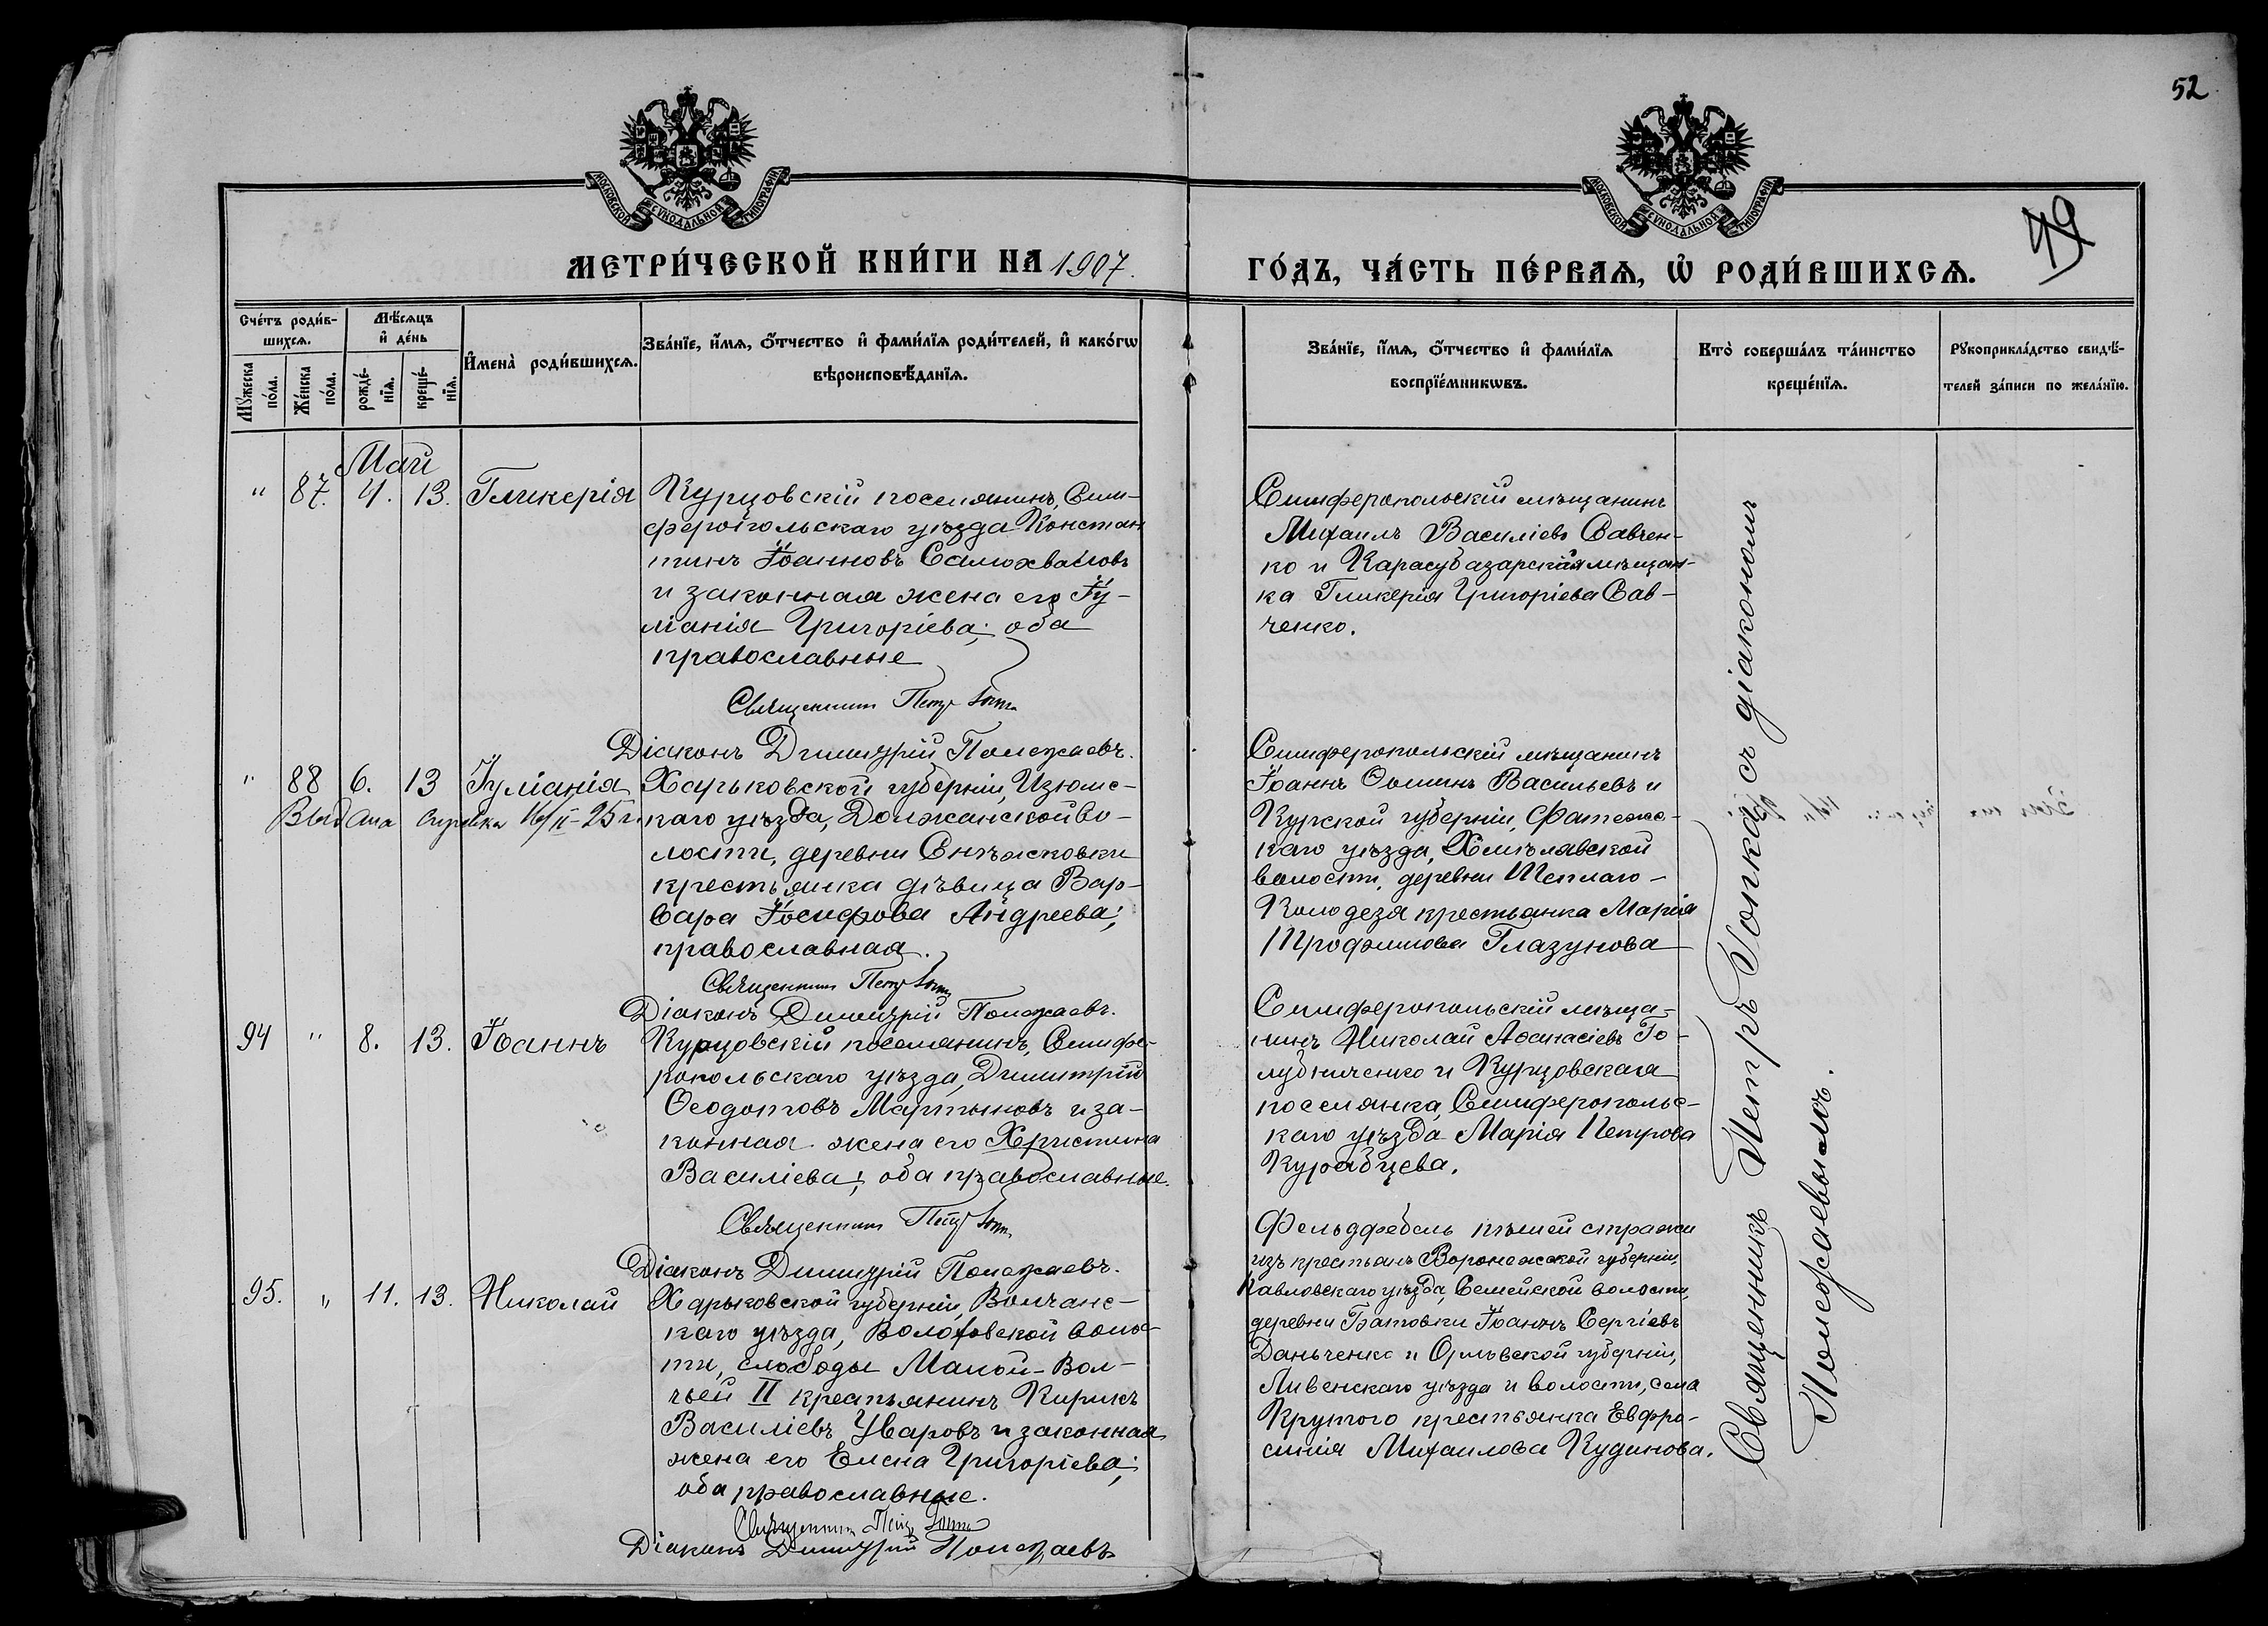 52
49
МОСКОВСКОЙ СѴНОДАЛЬНОЙ ТИПОГРАФІИ
МОСКОВСКОЙ СѴНОДАЛЬНОЙ ТИПОГРАФІИ
МЕТРИ́ЧЕСКОЙ КНИ́ГИ НА 1907.
ГО́ДЪ, ЧА́СТЬ ПЕ́РВАѦ, Ѡ҆ РОДИ́ВШИХСѦ.
Сче́тъ роди́в-
шихсѧ.
Мꙋ́жеска
по́ла.
Же́нска
по́ла.
Мѣ́сѧцъ
и҆ де́нь
рожде́-
нїѧ.
креще́-
нїѧ.
И҆мена̀ роди́вшихсѧ.
Зва́нїе, и҆́мѧ, ѻ҆́тчество и҆ фами́лїѧ роди́телей, и҆ како́гѡ
вѣроисповѣ́данїѧ.
Зва́нїе, и҆́мѧ, ѻ҆́тчество и҆ фами́лїѧ
воспрїе́мникѡвъ.
Кто̀ соверша́лъ та́инство
креще́нїѧ.
Рꙋкоприкла́дство свидѣ́-
телей за́писи по жела́нїю.
Май
" 87. 4. 13. Гликерія
Курцовскій поселянинъ, Сим-
феропольскаго уѣзда Констан
тинъ Іоанновъ Самохваловъ
и законная жена его Іу-
ліанія Григоріева; оба
православные
Священникъ Петръ
Діаконъ Димитрій Полежаевъ.
Симферопольскій мѣщанинъ
Михаилъ Василіевъ Савчен-
ко и Карасубазарская мѣщан-
ка Гликерія Григоріева Сав-
ченко.
" 88 6. 13 Іуліанія
Выдана справка 16/II-25 г.
Харьковской губерніи, Изюмс-
каго уѣзда, Должанской во-
лости, деревни Снѣжковки
крестьянка дѣвица Вар-
вара Іосифова Андреева;
православная.
Священникъ Петръ
Діаконъ Димитрій Полежаевъ.
Симферопольскій мѣщанинъ
Іоаннъ Ѳоминъ Васильевъ и
Курской губерніи, Фатежс-
каго уѣзда, Хмѣлявской
волости, деревни Теплаго-
Колодезя крестьянка Марія
Трофимова Глазунова
94 " 8. 13. Іоаннъ
Курцовскій поселянинъ, Симфе-
ропольскаго уѣзда, Димитрій
Ѳеодотовъ Мартыновъ и за-
конная жена его Христина
Василіева; оба православные.
Священникъ Петръ
Діаконъ Димитрій Полежаевъ.
Симферопольскій мѣща-
нинъ Николай Аѳанасіевъ Го-
лубниченко и Курцовская
поселянка, Симферопольс-
каго уѣзда Марія Петрова
Курабцева.
95. " 11. 13. Николай
Харьковской губерніи, Волчанс-
каго уѣзда, Волоховской волос-
ти, слободы Малой-Вол-
чьей II крестьянинъ Кирикъ
Василіевъ Уваровъ и законная
жена его Елена Григоріева;
оба православные.
Священникъ Петръ
Діаконъ Димитрій Полежаевъ
Фельдфебель пѣшей стражи
изъ крестьянъ Воронежской губерніи,
Павловскаго уѣзда, Семейской волости,
деревни Батовки Іоаннъ Сергіевъ
Даньченко и Орловской губерніи,
Ливенскаго уѣзда и волости, села
Крутого крестьянка Евфро-
синія Михаилова Кудинова.
Священникъ Петръ Сопка съ діакономъ
Полежаевымъ.